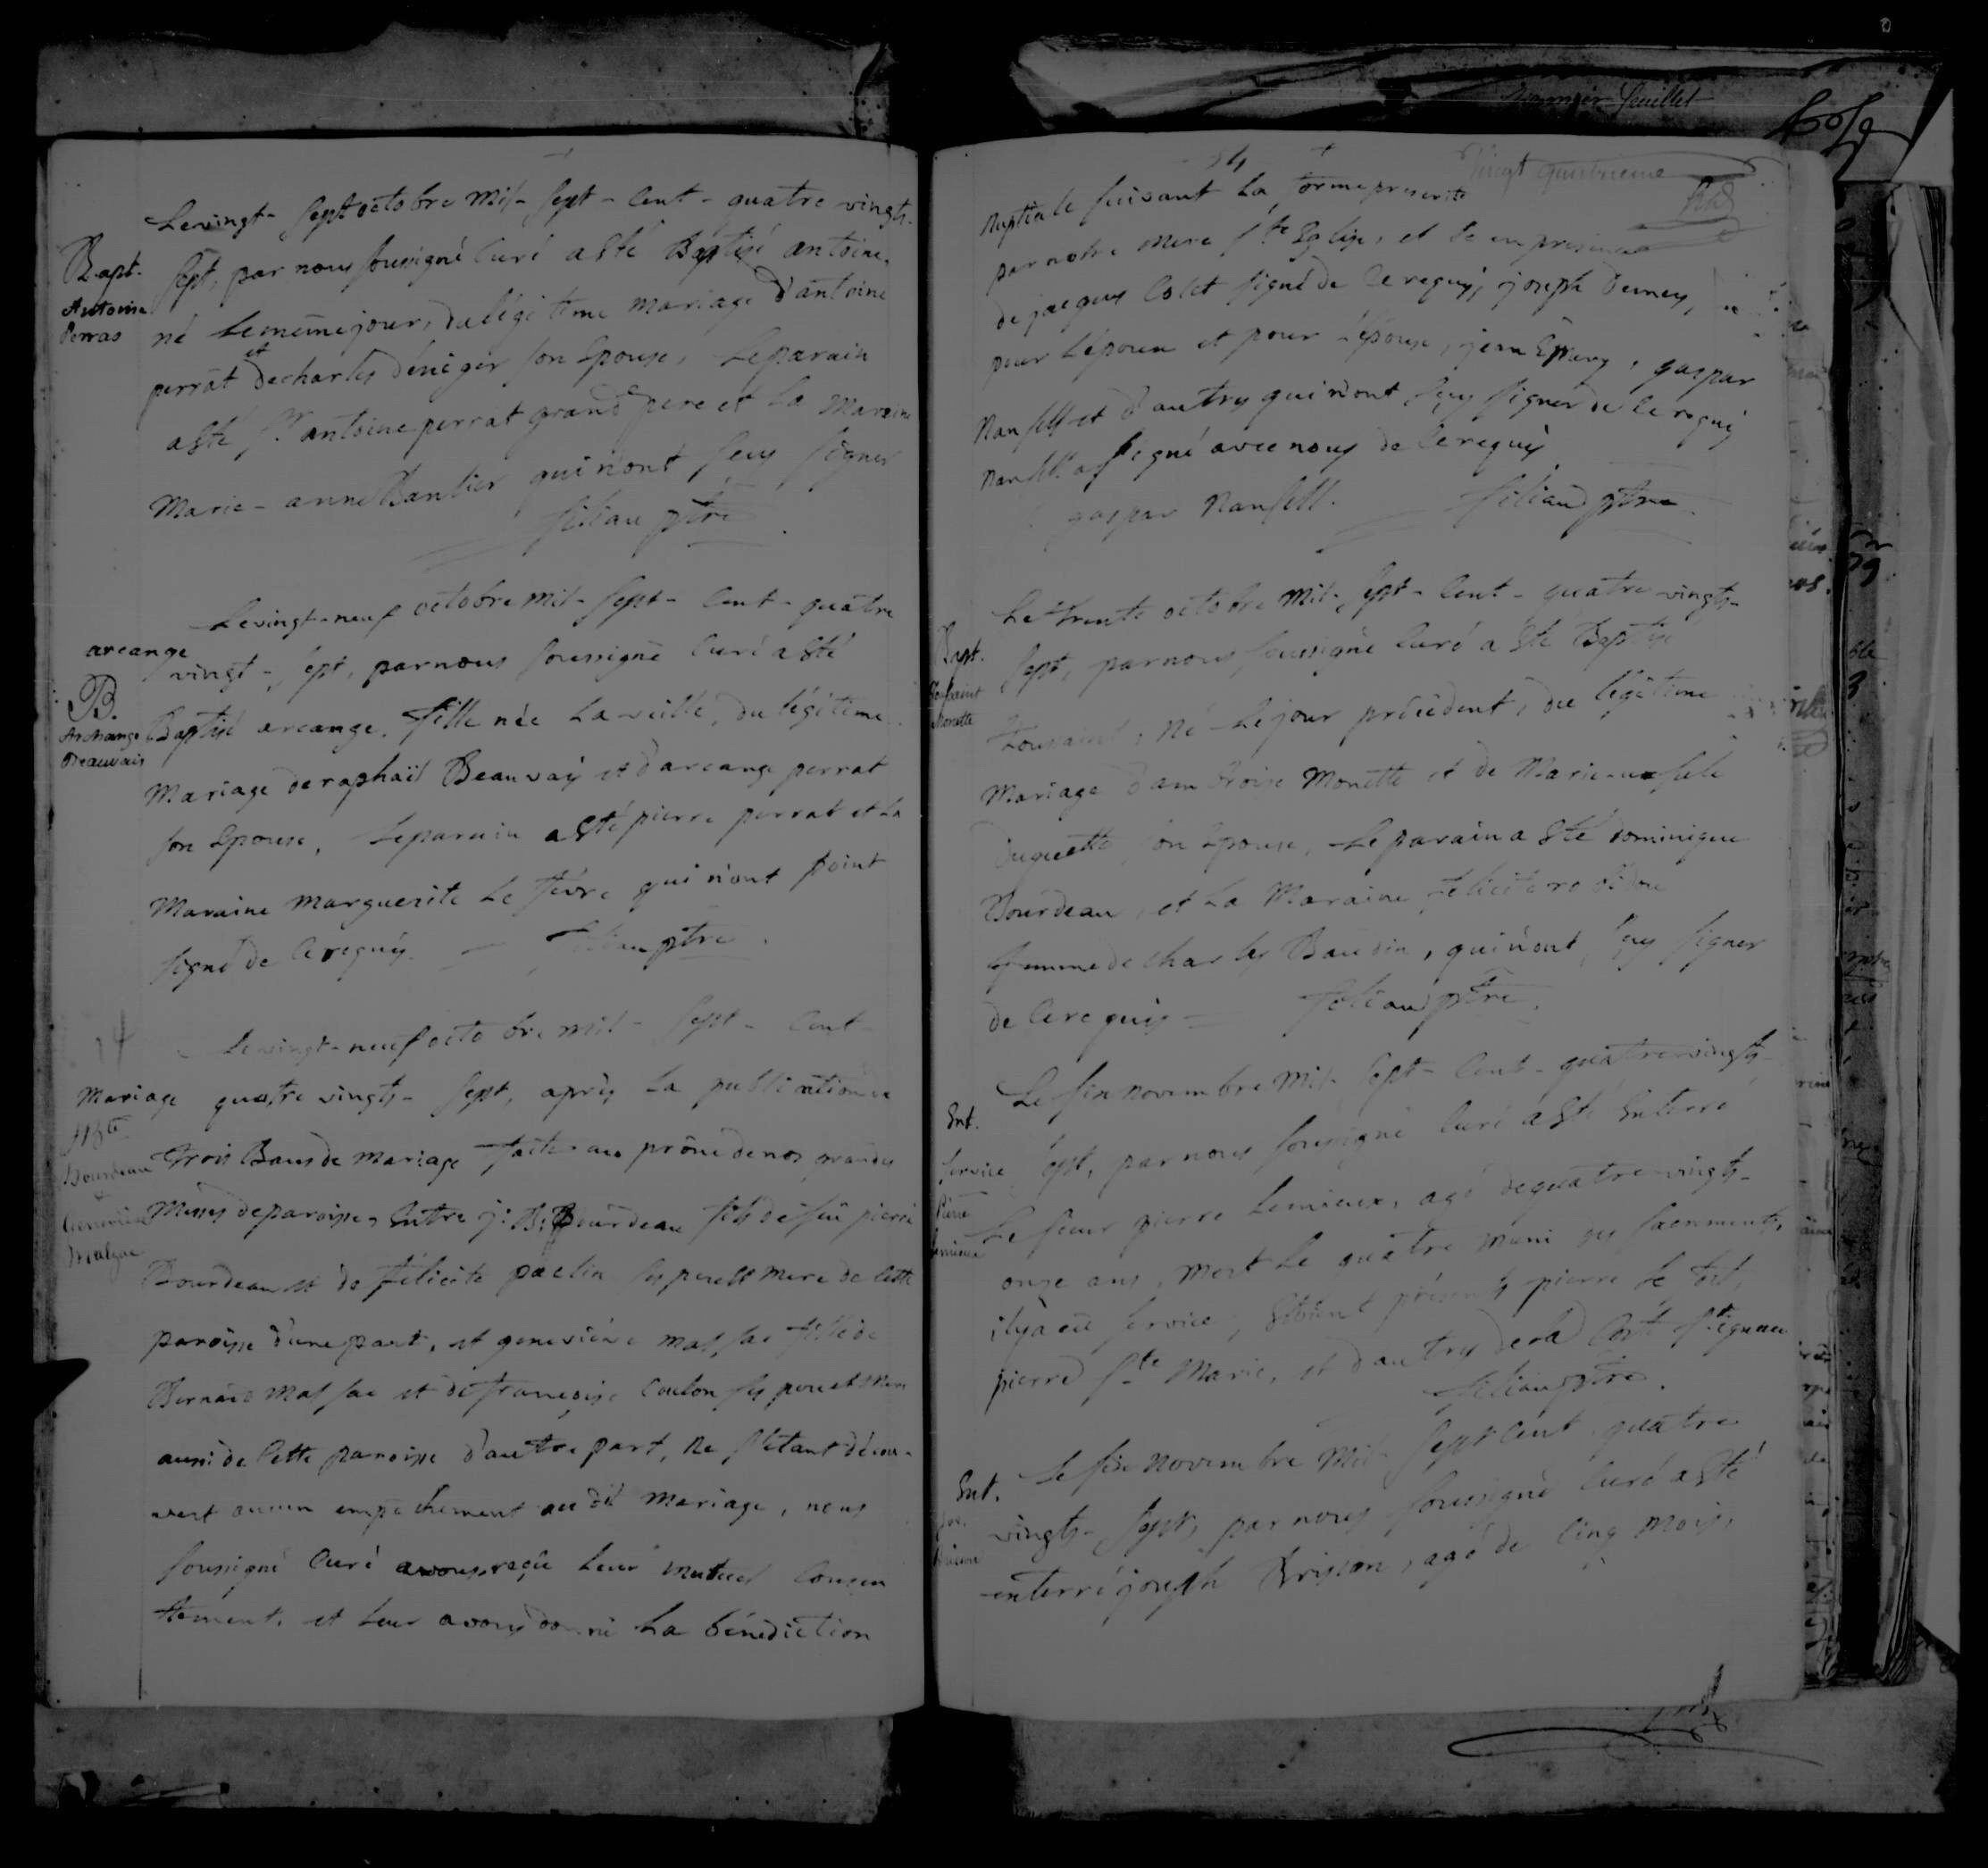 Le vingt- sept octobre mil- sept- cent- quatre vingts-
Bapt. Antoine Perras
sept, par nous soussigné curé a été Baptisé antoine
né le même jour, du légitime mariage d'antoine
perrat et de charles déniger son epouse, Le parain
a été sr. antoine perrat grand pere et la maraine
Marie- anne Bantier qui n'ont sçus signer
filiau ptre
Le vingt-neuf octobre mil- sept- cent- quatre
arcange
B. Archange Beauvais
vingt- sept, par nous soussigné curé a été
Baptisé arcange, fille née la veille, du légitime
mariage de raphaïl Beauvaÿ et d'arcange perrat
son epouse, Le parain a été pierre perrat et La
Maraine marguerite Le fèvre qui n'ont point
signé de ce requis. filiau ptre
14
Le vingt-neuf octobre mil- sept- cent-
Mariage J Bte Bourdeau & Geneviève
quatre vingts- sept, après la publication de
trois Bans de mariage faite au prône de nos grandes
Messes de paroisse, entre j: B: Bourdeau fils de feu pierre
Bourdeau et de félicité ses pere et mere de cette
paroisse d'une part, et geneviève fille de
Bernard et de françoise Coulon ses pere et mere
aussi de cette paroisse d'autre part, ne s'étant décou-
vert aucun empêchement au dit mariage, nous
soussigné curé avons reçu leur mutuel consen
tement, et leur avons donné la bénédiction
24
vingt quatrieme
premier feuillet
nuptiale suivant la forme prescrite
par notre mere ste Eglise, et ce en presence
de jacques Colet signé de ce requis, joseph
pour L'époux et pour L'épouse, jean , gaspar
Nansell et d'autres qui n'ont sçus signer de ce requis
Nansell a signé avec nous de ce requis
gaspar Nansell. filiau ptre
Le trente octobre mil- sept- cent- quatre vingts-
Bapt. Toussaint Monette
sept, par nous soussigné curé a été Baptisé
Toussaint, né le jour précédent, du légitime
mariage d'ambroise Monette et de Marie-
Duquette son epouse, Le parain a été dominique
Bourdeau, et La Maraine félicité
femme de charles Baudin, qui n'ont sçus signer
de ce requis filiau ptre
Le six novembre mil- sept- cent- quatre vingts-
Ent. service Pierre Lemieux
sept, par nous soussigné curé a été enterré
Le sieur pierre Lemieux, agé de quatre-vingts-
onze ans, mort le quatre muni des sacrements,
il y a eû service, étoient présents pierre
pierre ste Marie, et d'autres de la Côté st ignace
filiau ptre
Le six novembre mil- sept cent quatre
Ent. Jos.
vingts- sept, par nous soussigné curé a été
enterré joseph Brisson, agé de cinq mois,